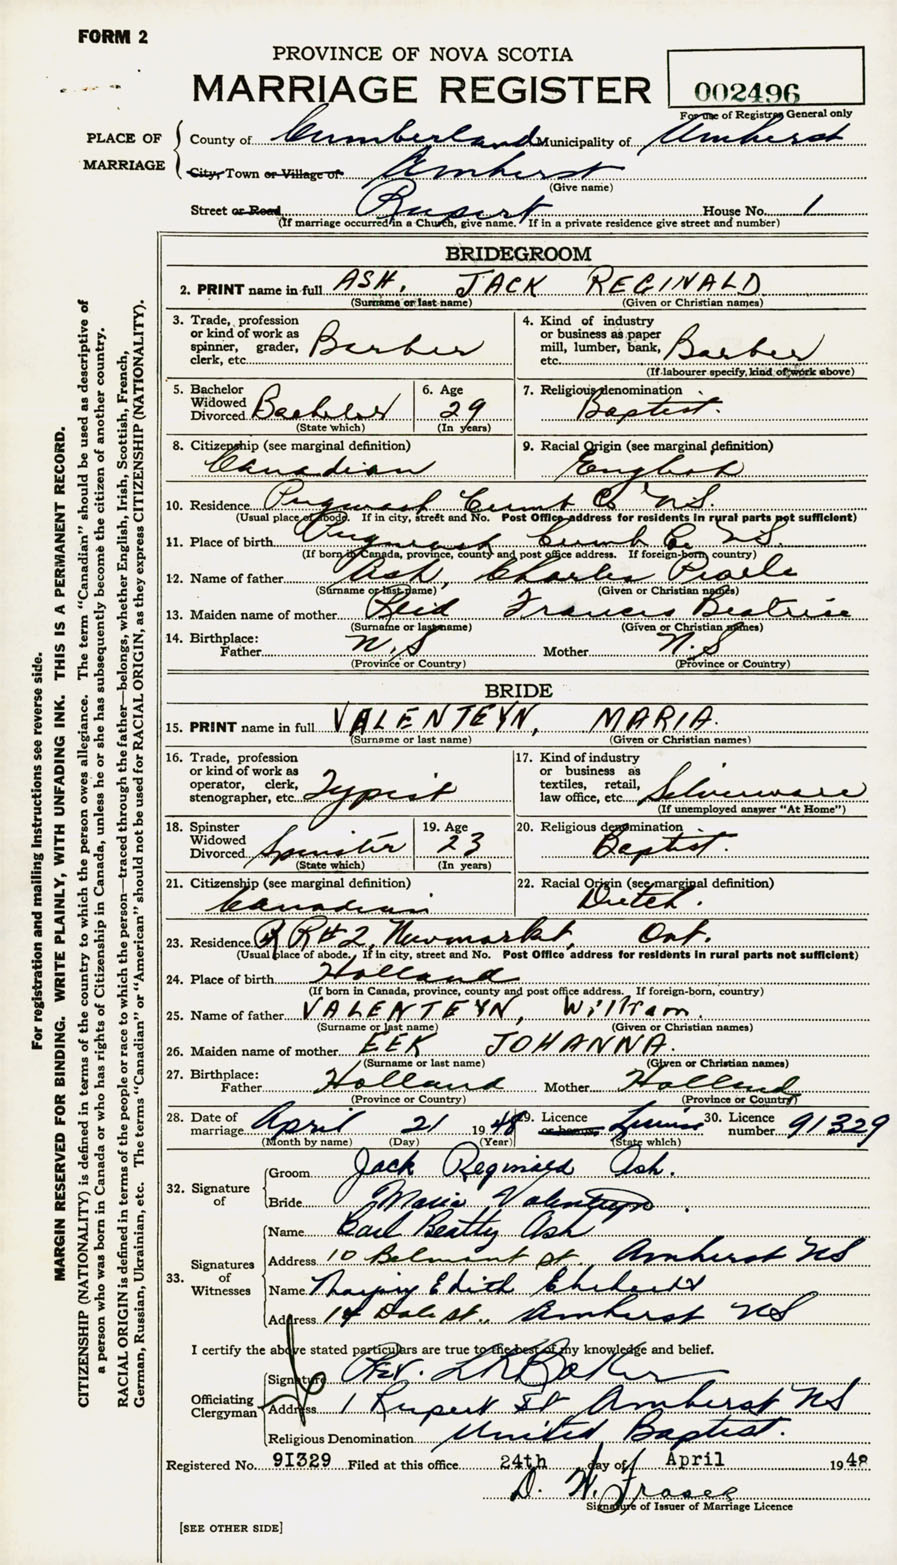 FORM 2
PROVINCE OF NOVA SCOTIA
MARRIAGE REGISTER
002496
For use of Registrar General only
PLACE OF MARRIAGE
County of Cumberland Municipality of Amherst
City, Town or Village of Amherst
(Give name)
Street or Road Rupert House No. 1
(If marriage occurred in a Church, give name. If in a private residence give street and number)
BRIDEGROOM
2. PRINT name in full ASH, JACK REGINALD
(Surname or last name) (Given or Christian names)
3. Trade, profession or kind of work as spinner, grader, clerk, etc. Barber
4. Kind of industry or business as paper mill, lumber, bank, etc. Barber
(If labourer specify, kind of work above)
5. Bachelor Widowed Divorced Bachelor
(State which)
6. Age 29
(In years)
7. Religious denomination Baptist.
8. Citizenship (see marginal definition)
Canadian
9. Racial Origin (see marginal definition)
English
10. Residence Pugwash Cumb Co NS.
(Usual place of abode. If in city, street and No. Post Office address for residents in rural parts not sufficient)
11. Place of birth Pugwash Cumb Co. NS.
(If born in Canada, province, county and post office address. If foreign-born, country)
12. Name of father Ash, Charles
(Surname or last name) (Given or Christian names)
13. Maiden name of mother Reid Francis Beatrice
(Surname or last name) (Given or Christian names)
14. Birthplace:
Father N.S Mother N.S
(Province or Country) (Province or Country)
BRIDE
15. PRINT name in full VALENTEYN, MARIA.
(Surname or last name) (Given or Christian names)
16. Trade, profession or kind of work as operator, clerk, stenographer, etc. Typist
17. Kind of industry or business as textiles, retail, law office, etc. Silverware
(If unemployed answer "At Home")
18. Spinster Widowed Divorced Spinster
(State which)
19. Age 23
(In years)
20. Religious denomination
Baptist.
21. Citizenship (see marginal definition)
Canadian
22. Racial Origin (see marginal definition)
Dutch.
23. Residence R R # 2, Newmarket, Ont.
(Usual place of abode. If in city, street and No. Post Office address for residents in rural parts not sufficient)
24. Place of birth Holland
(If born in Canada, province, county and post office address. If foreign-born, country)
25. Name of father VALENTEYN, William.
(Surname or last name) (Given or Christian names)
26. Maiden name of mother EEK JOHANNA.
(Surname or last name) (Given or Christian names)
27. Birthplace:
Father Holland Mother Holland
(Province or Country) (Province or Country)
28. Date of marriage April 21 1948
(Month by name) (Day) (Year)
29. Licence or banns License
(State which)
30. Licence number 91329
32. Signature of
Groom Jack Reginald Ash.
Bride Maria Valenteyn.
33. Signatures of Witnesses
Name Carl Beatty Ash
Address 10 Belmont St. Amherst NS
Name Edith
Address 14 Dale St., Amherst NS
I certify the above stated particulars are true to the best of my knowledge and belief.
Officiating Clergyman
Signature Rev. L R Baker
Address 1 Rupert St Amherst NS
Religious Denomination United Baptist.
Registered No. 91329 Filed at this office 24th day of April 1948
D. W. Fraser
Signature of Issuer of Marriage Licence
[SEE OTHER SIDE]
For registration and mailing instructions see reverse side.
MARGIN RESERVED FOR BINDING. WRITE PLAINLY, WITH UNFADING INK. THIS IS A PERMANENT RECORD.
CITIZENSHIP (NATIONALITY) is defined in terms of the country to which the person owes allegiance. The term "Canadian" should be used as descriptive of
a person who was born in Canada or who has rights of Citizenship in Canada, unless he or she has subsequently become the citizen of another country.
RACIAL ORIGIN is defined in terms of the people or race to which the person—traced through the father—belongs, whether English, Irish, Scottish, French,
German, Russian, Ukrainian, etc. The terms "Canadian" or "American" should not be used for RACIAL ORIGIN, as they express CITIZENSHIP (NATIONALITY).